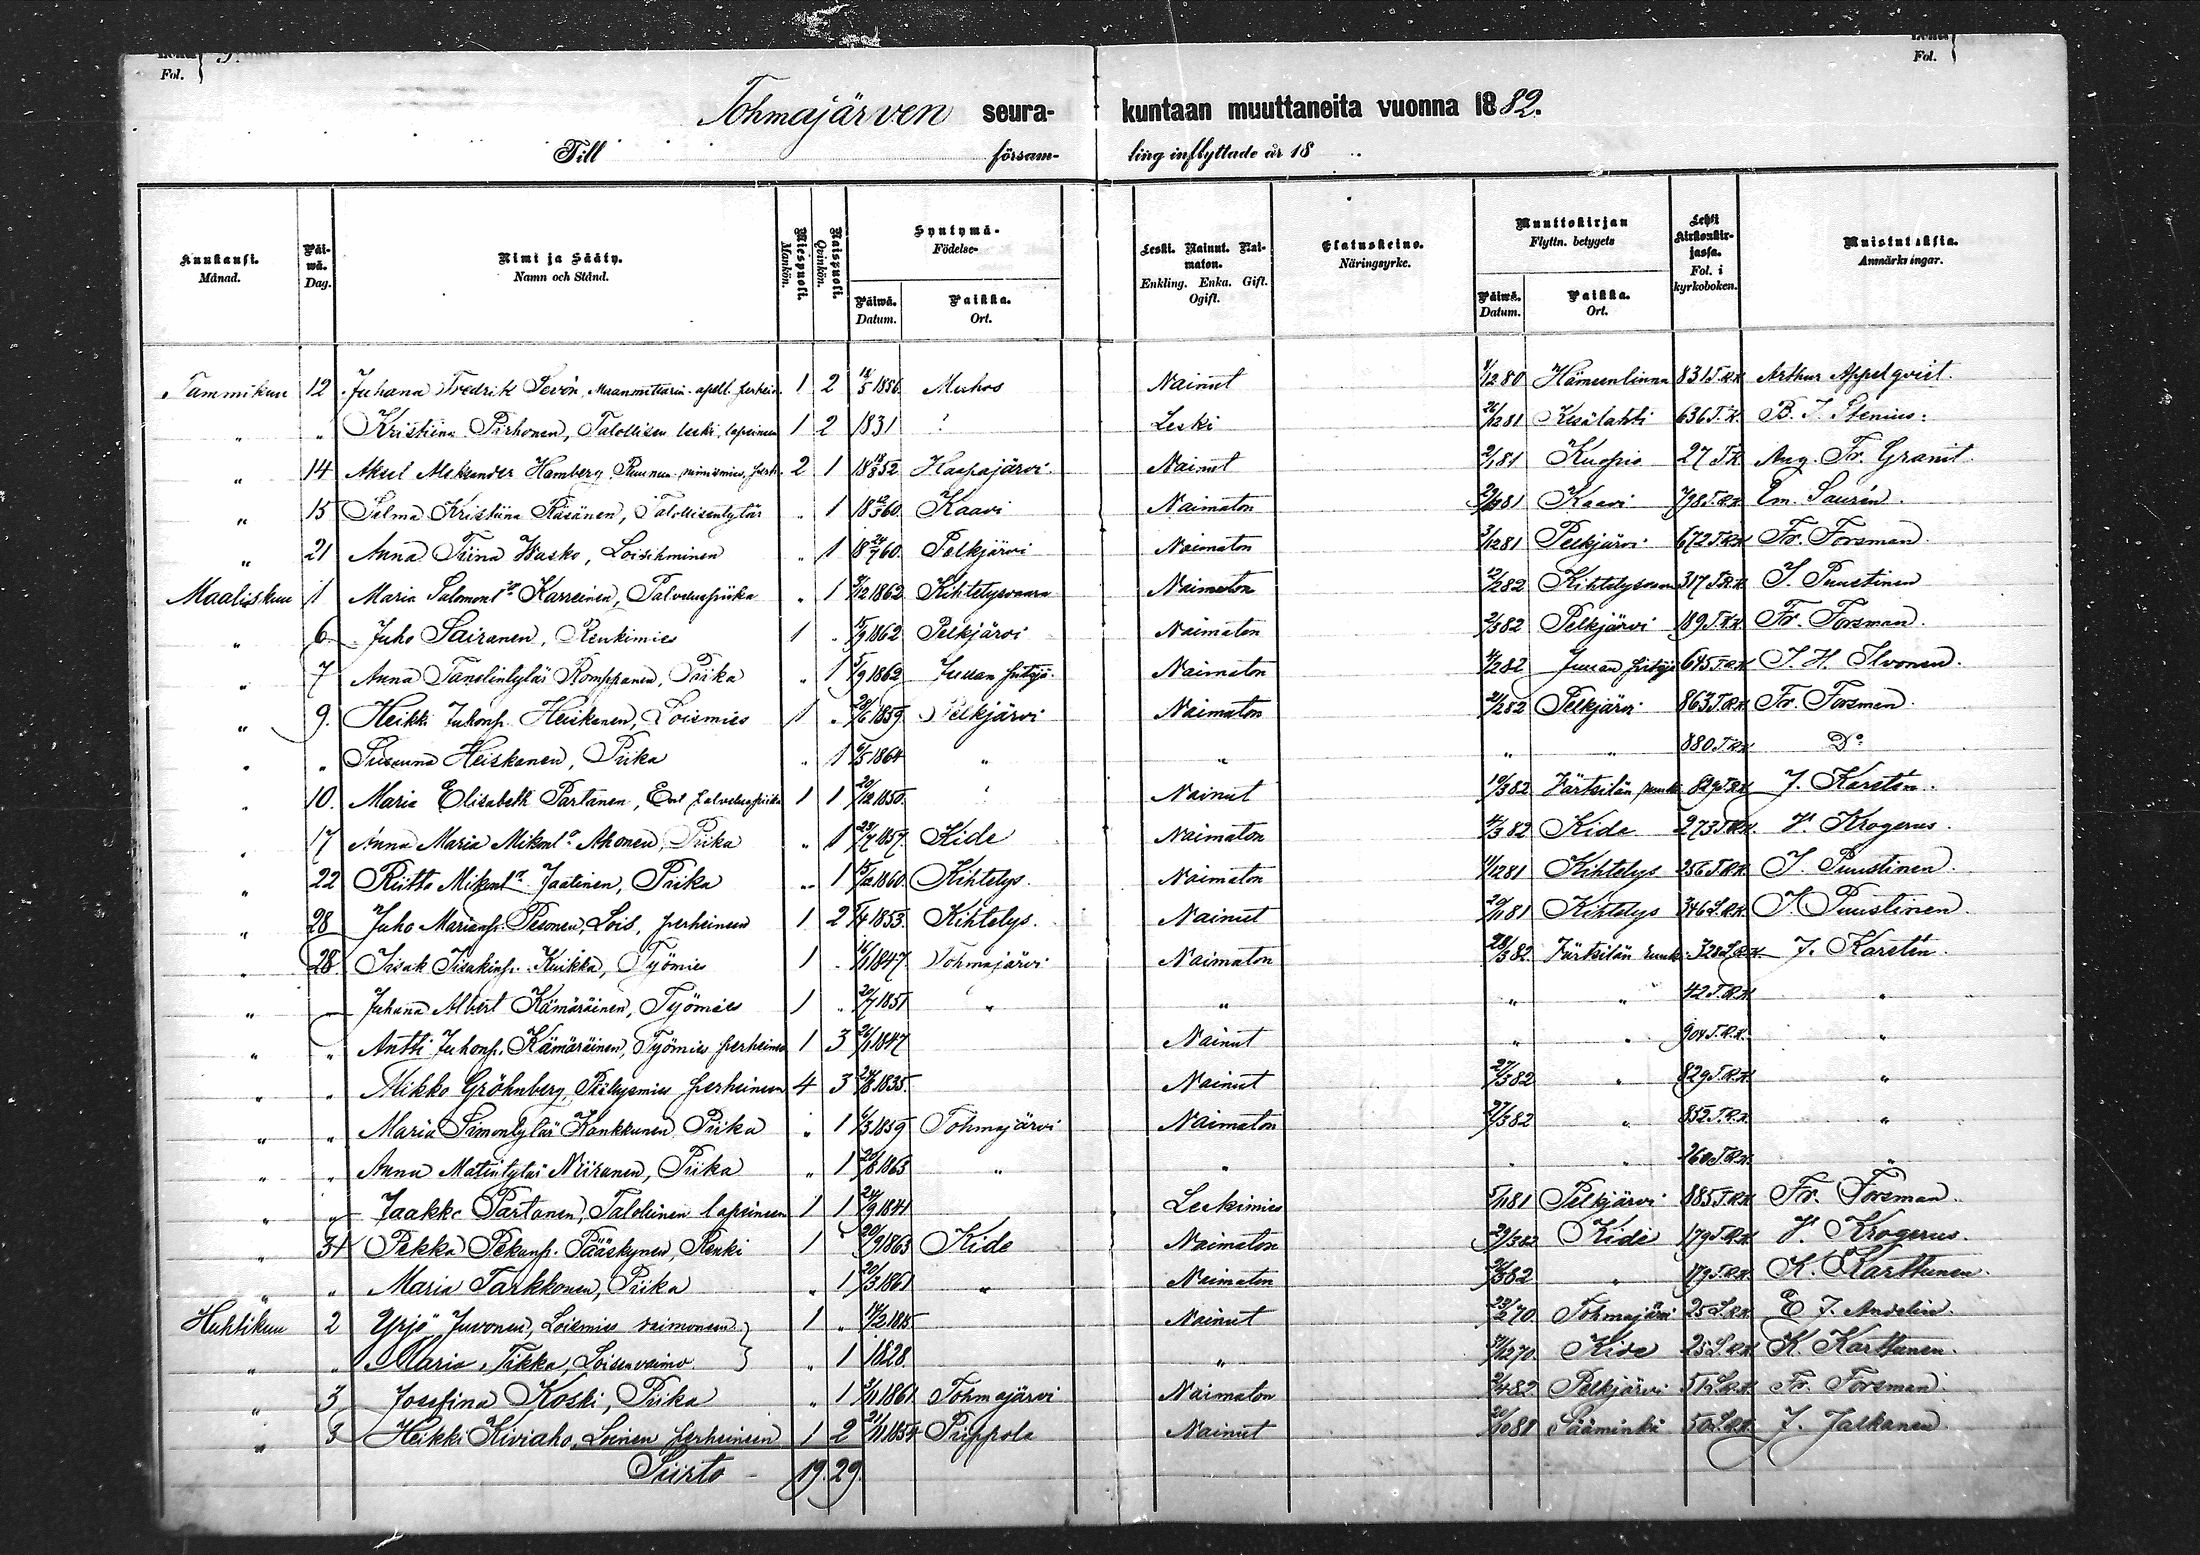 Fol.
Fol.
Tohmajärven seura-
kuntaan muuttaneita vuonna 1882.
Till försam-
ling inflyttade år 18
Kuukausi. Månad. Päiwä. Dag. Nimi ja Sääty. Namn och Stånd. Miespuoli. Mankön. Naispuoli. Qvinkön. Syntymä- Födelse- Päiwä. Datum. Paikka. Ort. Leski. Nainut. Naimaton. Enkling. Enka. Gift. Ogift. Elatuskeino. Näringsyrke. Muuttokirjan Flyttn. betygets Päiwä. Datum. Paikka. Ort. Lehti Kirkonkirjassa. Fol. i kyrkoboken. Muistutuksia. Anmärkningar.
Tammikuu 12 Juhana Fredrik Sevón, Maanmittarin 1 2 1856 Muhos Nainut 1/12 80 Hämeenlinna 831 T.R.K. Arthur Appelqvist.
" " Kristiina Pirhonen, Talollisen leski, lapsineen 1 2 1831 ? Leski 1281 Kesälahti 636 T.K. B. J. Stenius.
" 14 Aksel Aleksander Hamberg, Ruunun nimismies, perh. 2 1 1852 Haapajärvi Nainut 2/1 81 Kuopio 27 T.K. Aug. Fr. Granit.
" 15 Selma Kristiina Räsänen, Talollisentytär " 1 1860 Kaavi Naimaton 81 Kaavi 798 T.R.K. Em. Saurén.
" 21 Anna Triina Wasko, Loisihminen " 1 1860 Pelkjärvi Naimaton 1281 Pelkjärvi 672 T.R.K. Fr. Forsman.
Maaliskuu 1 Maria Salomont:r Karreinen, Palveluspiika " 1 1862 Kihtelysvaara Naimaton 12/2 82 Kihtelysvaara 317 T.R.K. J. Puustinen
" 6 Juho Sairanen, Renkimies 1 " 1862 Pelkjärvi Naimaton 2/3 82 Pelkjärvi 189 T.R.K. Fr. Forsman.
" 7 Anna Tanelintytär Romppanen, Piika " 1 5/9 1862 Juuan pitäjä Naimaton 4/2 82 Juuan pitäjä 645 T.R.K. J. H. Ilvonen.
" 9. Heikki Juhonp. Heiskanen, Loismies 1 " 1859 Pelkjärvi Naimaton 21/2 82 Pelkjärvi 863 T.R.K. Fr. Forsman.
" " Susanna Heiskanen, Piika " 1 1864 " " " " 880 T.R.K. D:o
" 10. Maria Elisabeth Partanen, Ent. palveluspiika 1 1 20/12 1850 " Nainut 10/3 82 Värtsilän ruuk. 829 T.R.K. J. Karstén.
" 17 Anna Maria Mikont:r Ahonen, Piika " 1 1857 Kide Naimaton 4/3 82 Kide 273 T.R.K. V. Krogerus.
" 22 Riitta Mikont:r Jaatinen, Piika " 1 15/2 1860 Kihtelys. Naimaton 1281 Kihtelys 256 T.R.K. J. Puustinen.
" 28 Juho Marianp. Pesonen, Lois, perheineen 1 2 1853 Kihtelys. Nainut 20/11 81 Kihtelys 346 L.R.K. J. Puustinen.
" 28 Iisak Iisakinp. Kuikka, Työmies 1 " 16/1 1847 Tohmajärvi Naimaton 28/3 82 Värtsilän ruuk. 328 L.R.K. J. Karstén.
" — Juhana Albert Kämäräinen, Työmies 1 " 20/7 1851 " " " " 42 T.R.K. "
" " Antti Juhonp. Kämäräinen, Työmies perheineen 1 3 26/1 1847 Nainut " " 904 T.R.K. "
" " Mikko Gröhnberg, perheineen 4 3 24/8 1835 Nainut 27/3 82 " 829 T.R.K. "
" " Maria Simontytär Konkkunen Piika " 1 6/3 1859 Tohmajärvi Naimaton 27/3 82 " 852 T.R.K. "
" " Anna Matintytär Niiranen, Piika " 1 20/8 1863 " " " " 260 T.R.K. "
" " Jaakko Partanen, Talollinen lapsineen 1 1 24/9 1841 Leskimies 81 Pelkjärvi 885 T.R.K. Fr. Forsman.
" 31 Pekka Pekanp. Pääskynen, Renki 1 " 20/9 1863 Kide Naimaton 82 Kide 179 T.R.K. V. Krogerus.
" " Maria Tarkkonen, Piika " 1 20/3 1861 " Naimaton 82 " 179 T.R.K. K. Karttunen.
Huhtikuu 2 Yrjö Juvonen, Loismies vaimoneen 1 " 1815 Nainut 23/2 70 Tohmajärvi 25 L.R.K. E. J. Andelin.
" " Maria Tikka, Loisenvaimo " 1 1828 " 1270 Kide 25 L.R.K. K. Karttunen.
" 3 Josefina Koski, Piika " 1 3/11 1861 Tohmajärvi Naimaton 2/4 82 Pelkjärvi 51 L.R.K. Fr. Forsman.
" 3 Heikki Kiviaho, Loinen perheineen 1 2 21/11 1854 Puppola Nainut 20/10 81 Sääminki 50 L.R.K. J. Jalkanen.
Siirto 19. 29.